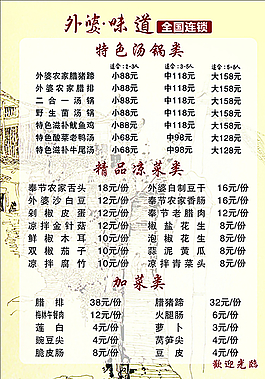 外婆·味道 全国连锁
特色汤锅类
适合:2-3人 适合:3-5人 适合:5-8人
外婆农家腊猪蹄 小88元 中118元 大158元
外婆农家腊排 小88元 中118元 大158元
二合一汤锅 小88元 中118元 大158元
野生菌汤锅 小88元 中118元 大158元
特色滋补鱿鱼鸡 小88元 中118元 大158元
特色酸菜老鸭汤 小68元 中98元 大128元
特色滋补牛尾汤 小68元 中98元 大128元
精品凉菜类
奉节农家舌头 18元/份 外婆自制豆干 16元/份
外婆沙白菜 12元/份 奉节农家香肠 16元/份
剁椒皮蛋 12元/份 奉节老腊肉 12元/份
凉拌金针菇 12元/份 椒盐花生 8元/份
鲜椒木耳 10元/份 泡椒花生 8元/份
双椒茄子 10元/份 蒜泥黄瓜 8元/份
凉拌腐竹 10元/份 凉拌青菜头 8元/份
加菜类
腊排 38元/份 腊猪蹄 32元/份
梅林午餐肉 12元/份 火腿肠 6元/份
莲白 4元/份 萝卜 3元/份
豌豆尖 4元/份 莴笋尖 4元/份
脆皮肠 8元/份 豆皮 4元/份
欢迎光临